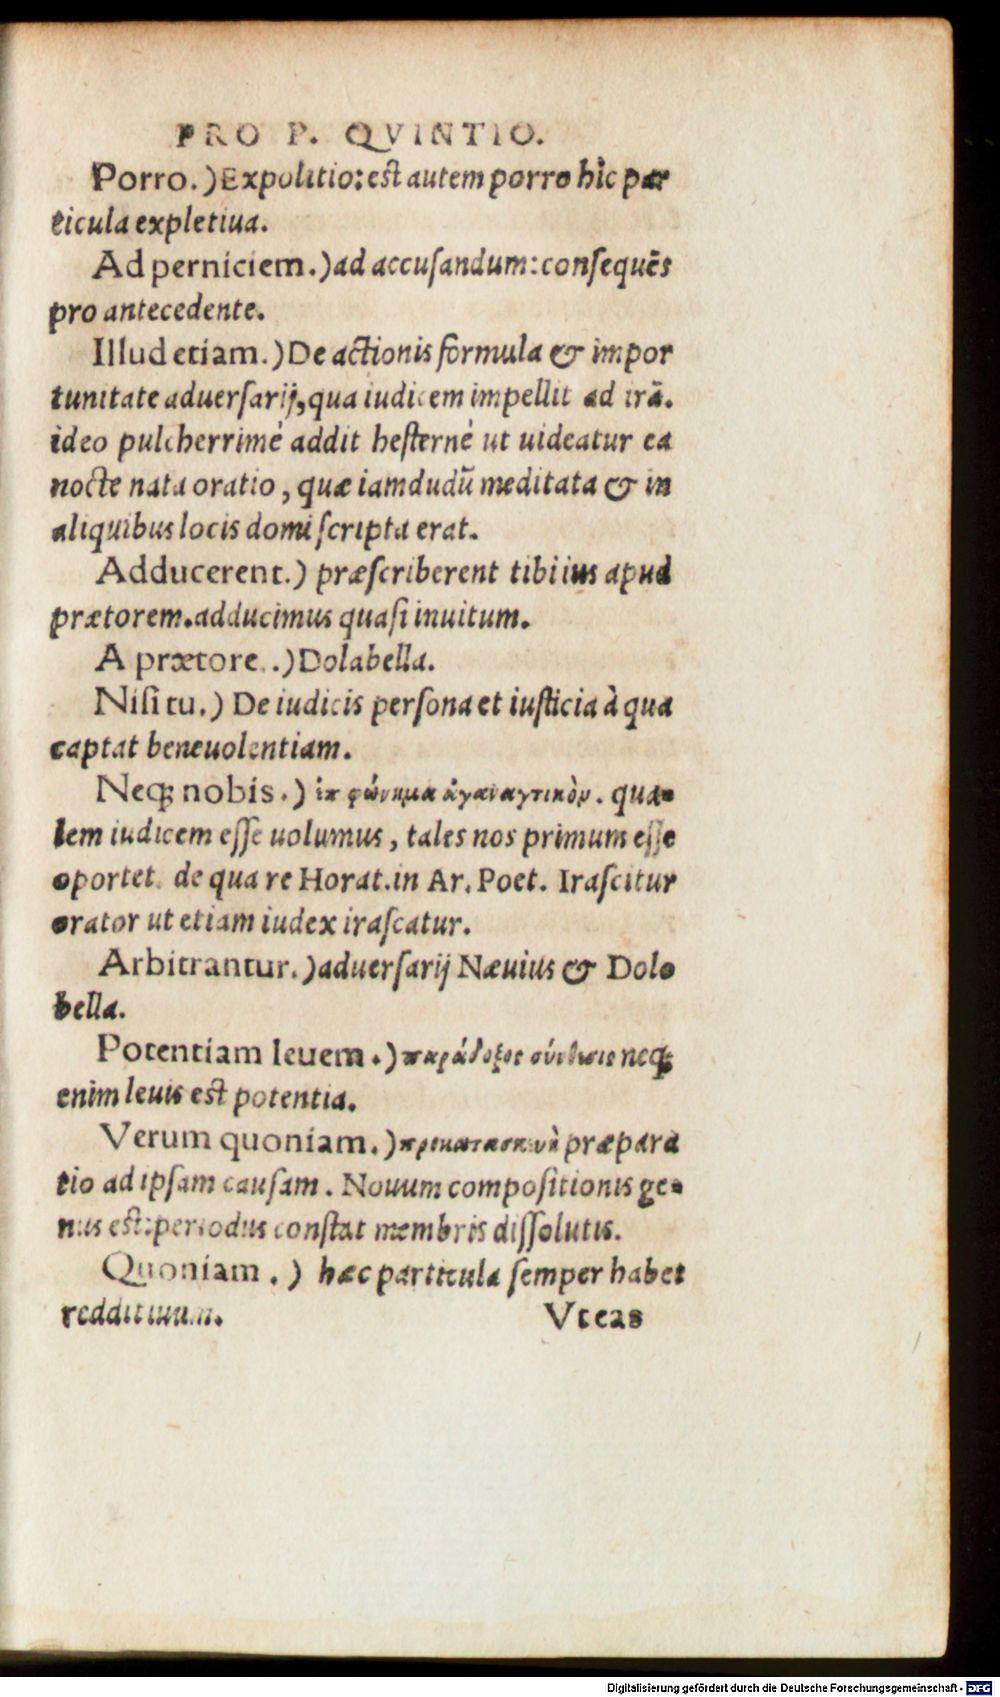 PRO P. QVINTIO.
Porro.) Expolitio: est autem porro hîc par
ticula expletiua.
Ad perniciem.) ad accusandum: consequēs
pro antecedente.
Illud etiam.) De actionis formula & impor
tunitate aduersarij, qua iudicem impellit ad irā.
ideo pulcherrimé addit hesterné ut uideatur ea
nocte nata oratio, quæ iamdudū meditata & in
aliquibus locis domi scripta erat.
Adducerent.) præscriberent tibi ius apud
prætorem. adducimus quasi inuitum.
A prætore.) Dolabella.
Nisi tu.) De iudicis persona et iusticia à qua
captat beneuolentiam.
Neq; nobis.) ἐπιφώνημα ἀγανακτικὸν. qua-
lem iudicem esse uolumus, tales nos primum esse
oportet. de qua re Horat. in Ar. Poet. Irascitur
orator ut etiam iudex irascatur.
Arbitrantur.) aduersarij Næuius & Dola
bella.
Potentiam leuem.) neq;
enim leuis est potentia.
Verum quoniam.) præpara
tio ad ipsam causam. Nouum compositionis ge-
nus est: periodus constat membris dissolutis.
Quoniam.) hæc particula semper habet
redditiuum. Vt eas
Digitalisierung gefördert durch die Deutsche Forschungsgemeinschaft - DFG